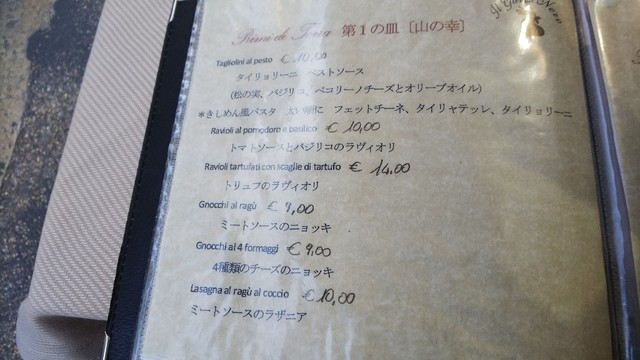 Il Gatto Nero
Primi di Terra 第１の皿〔山の幸〕
Tagliolini al pesto € 10,00
タイリョリーニ ペストソース
(松の実、バジリコ、ペコリーノチーズとオリーブオイル)
＊きしめん風パスタ 太い順に フェットチーネ、タイリャテッレ、タイリョリーニ
Ravioli al pomodoro e basilico € 10,00
トマトソースとバジリコのラヴィオリ
Ravioli tartufati con scaglie di tartufo € 14,00
トリュフのラヴィオリ
Gnocchi al ragù € 9,00
ミートソースのニョッキ
Gnocchi al 4 formaggi € 9,00
4種類のチーズのニョッキ
Lasagna al ragù al coccio € 10,00
ミートソースのラザニア